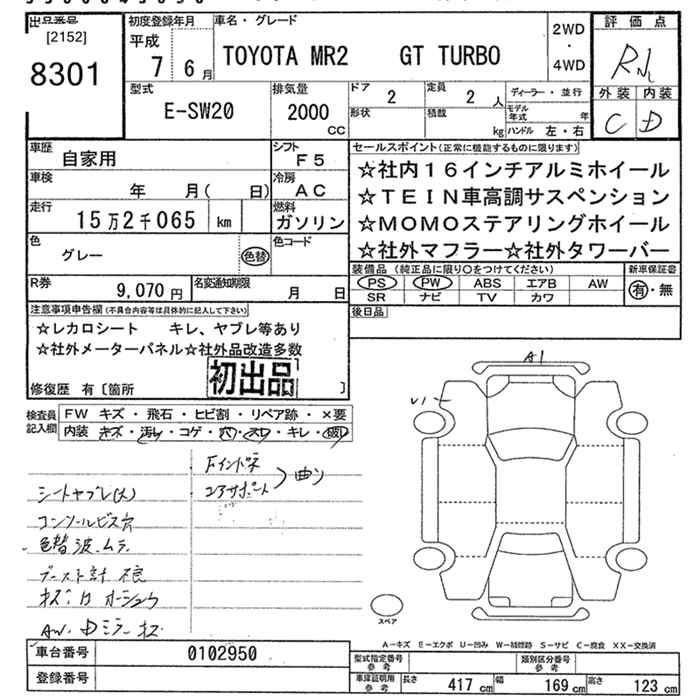 出品番号
[2152]
8301
初度登録年月
平成
7 6月
車名・グレード
TOYOTA MR2 GT TURBO
2WD
・
4WD
評価点
外装 内装
C D
型式
E-SW20
排気量
2000
CC
ドア
2
定員
2 人
形状
積載
kg
ディーラー・並行
モデル年式 年
ハンドル 左・右
車歴
自家用
シフト
F5
車検
年 月( 日)
冷房
AC
走行
15万2千065 km
燃料
ガソリン
色
グレー
色替
色コード
R券
9,070円
名変通知期限
月 日
セールスポイント(正常に機能するものに限ります)
☆社内16インチアルミホイール
☆TEIN車高調サスペンション
☆MOMOステアリングホイール
☆社外マフラー☆社外タワーバー
装備品 (純正品に限り○をつけてください)
新車保証書
PS PW ABS エアB AW
SR ナビ TV カワ
有・無
後日品
注意事項申告欄(不具合内容等は具体的に記入して下さい)
☆レカロシート キレ、ヤブレ等あり
☆社外メーターパネル☆社外品改造多数
初出品
修復歴 有〔箇所 〕
検査員記入欄
FW キズ・飛石・ヒビ割・リペア跡・×要
内装 キズ・汚れ・コゲ・穴・スレ・キレ・破れ
シートヤブレ(大)
コンソールビス穴
色替 波.ムラ
ブースト計 不良
AW. Dミラーキズ
Fインドネ
コアサポート
曲り
A1
U1
スペア
A-キズ E-エクボ U-凹み W-補修跡 S-サビ C-腐食 XX-交換済
車台番号
0102950
登録番号
型式指定番号
参考
類別区分番号
参考
車庫証明用
参考
長さ 417cm 幅 169cm 高さ 123cm